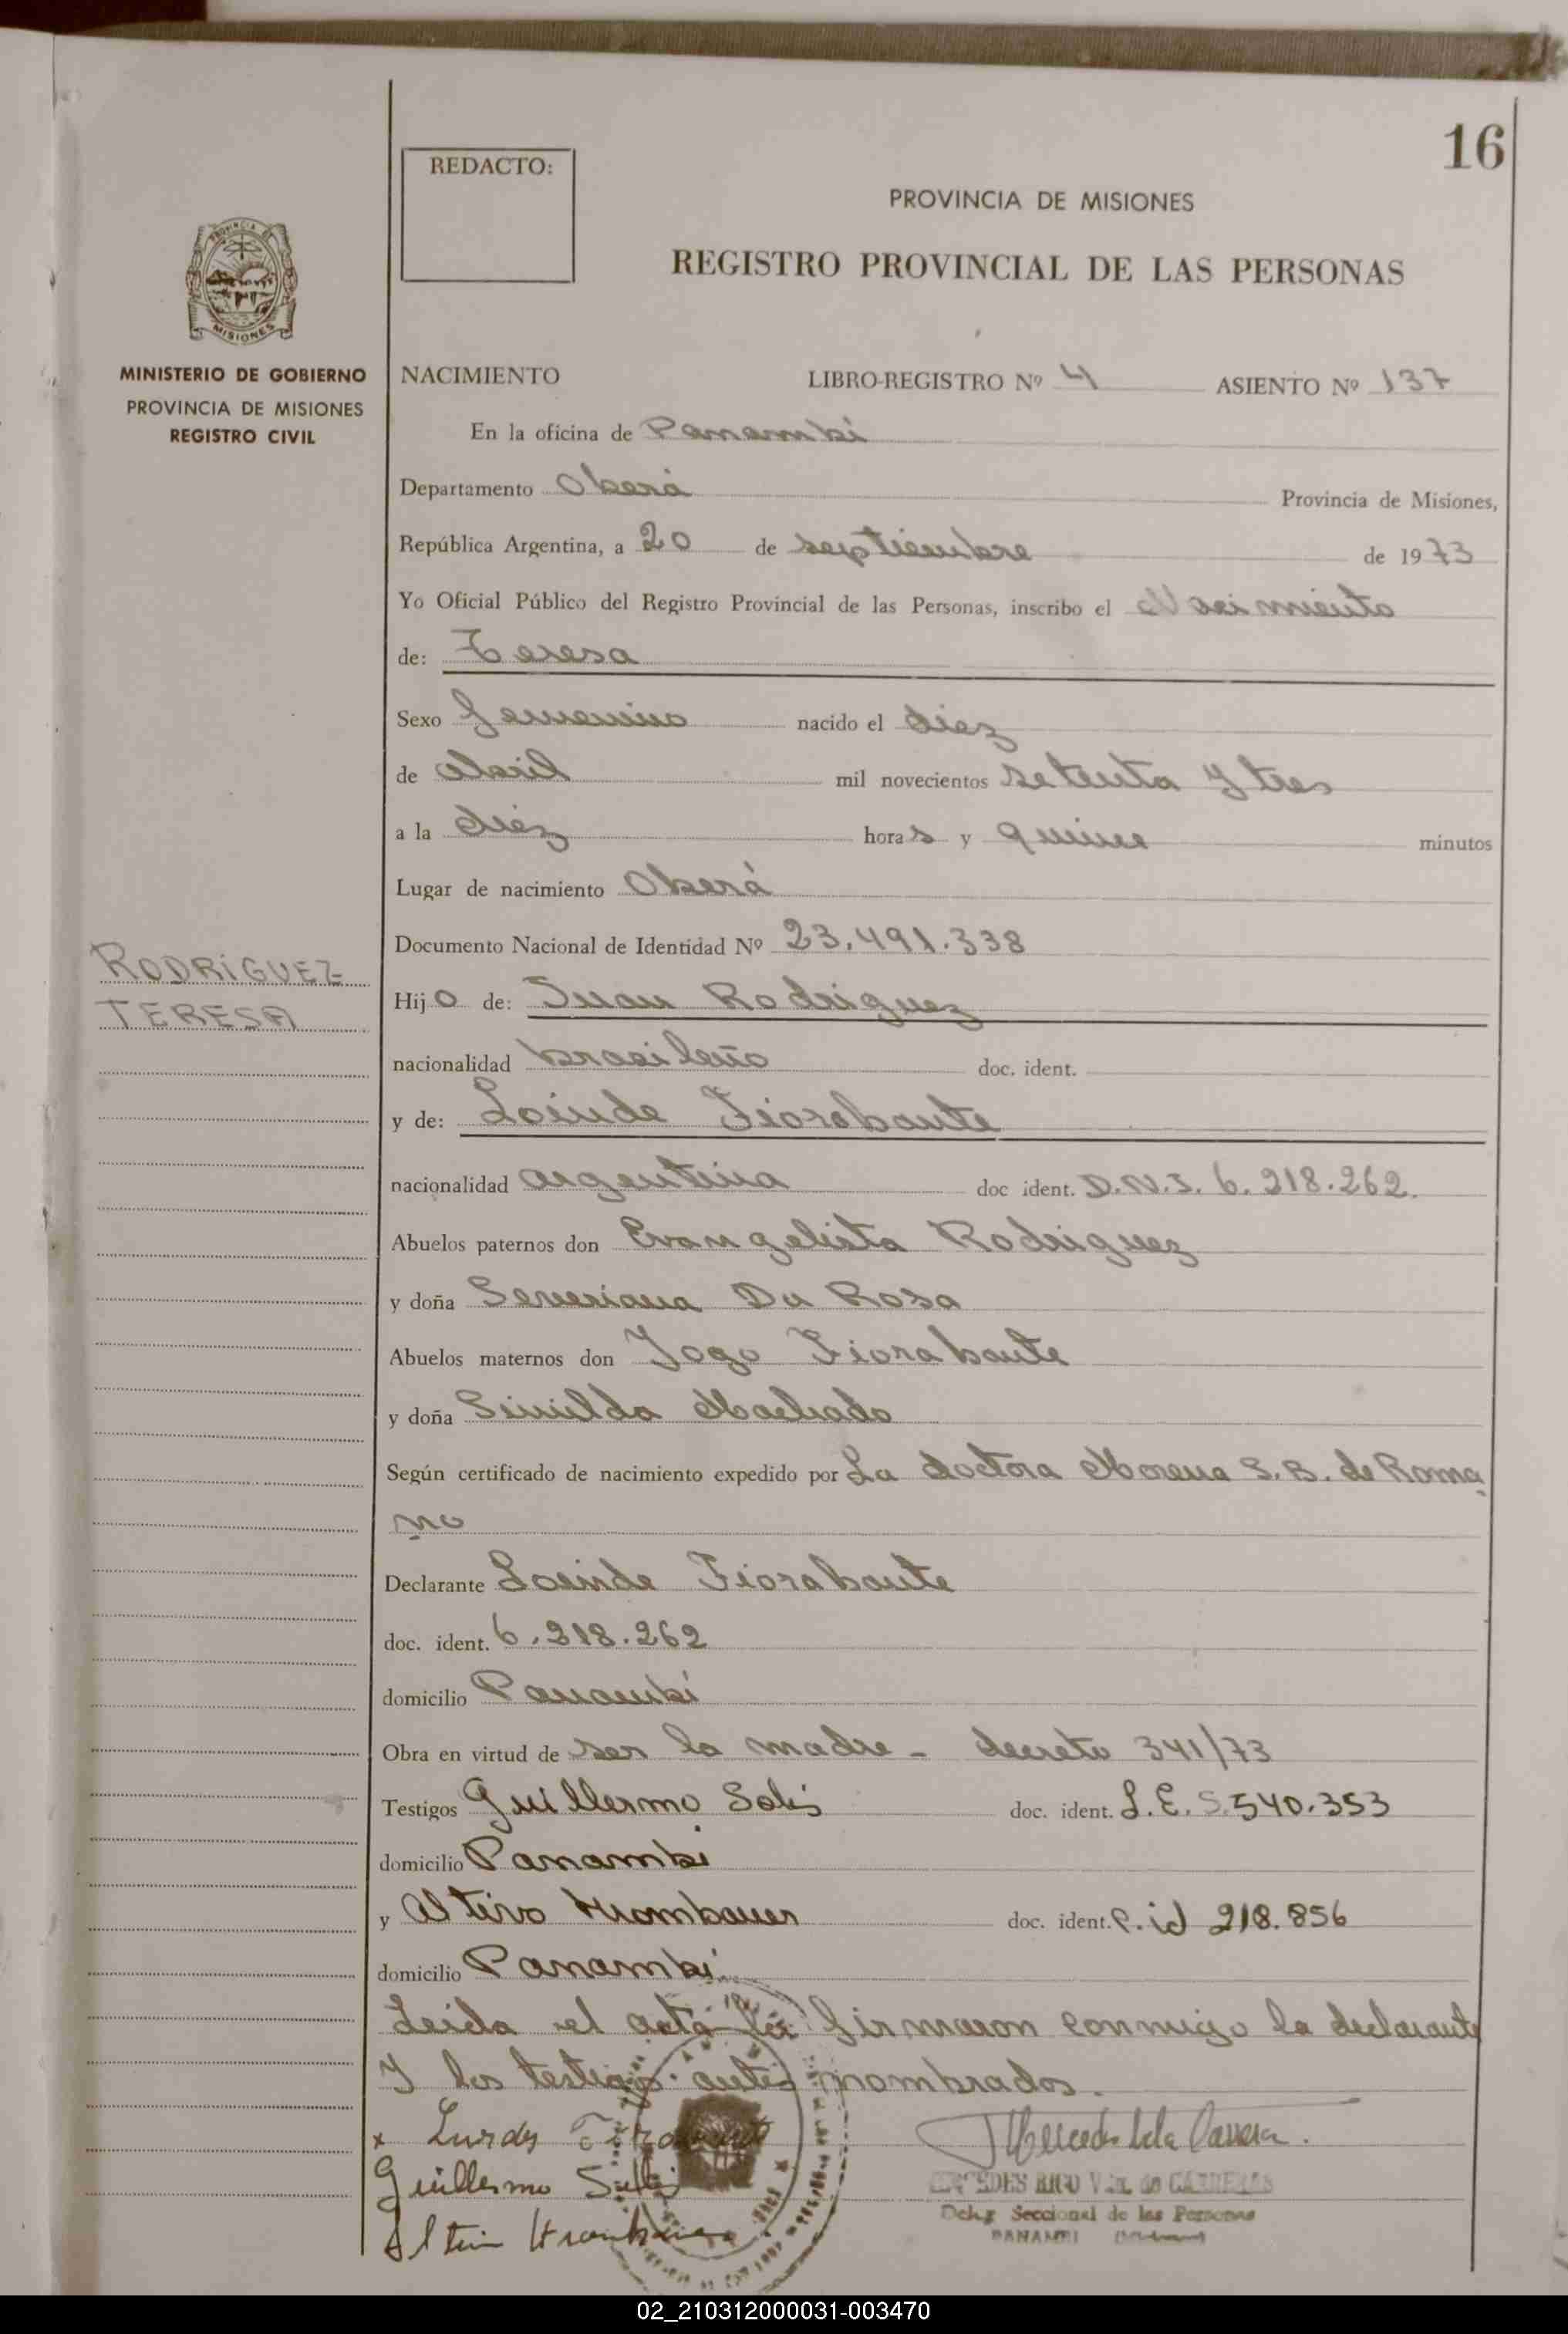 16
REDACTO:
PROVINCIA DE MISIONES
REGISTRO PROVINCIAL DE LAS PERSONAS
MISIONES
MINISTERIO DE GOBIERNO
PROVINCIA DE MISIONES
REGISTRO CIVIL
NACIMIENTO LIBRO-REGISTRO Nº 4 ASIENTO Nº 137
En la oficina de Panambí
Departamento Oberá Provincia de Misiones,
República Argentina, a 20 de septiembre de 1973
Yo Oficial Público del Registro Provincial de las Personas, inscribo el Nacimiento
de: Teresa
Sexo Femenino nacido el diez
de Abril mil novecientos setenta y tres
a la diez horas y quince minutos
Lugar de nacimiento Oberá
Documento Nacional de Identidad Nº 23.491.338
RODRÍGUEZ
TERESA
Hijo de: Juan Rodriguez
nacionalidad brasileño doc. ident.
y de: Loinde Fiorabante
nacionalidad argentina doc ident. D.N.I. 6.218.262.
Abuelos paternos don Evangelista Rodriguez
y doña Severiana Da Rosa
Abuelos maternos don Jogo Fiorabante
y doña Sinilda Machado
Según certificado de nacimiento expedido por La doctora Morena S.B. de Roma
no
Declarante Loinde Fiorabante
doc. ident. 6.218.262
domicilio Panambí
Obra en virtud de ser la madre - decreto 341/73
Testigos Guillermo Solis doc. ident. L.E. 5.540.353
domicilio Panambi
y Altivo Krombauer doc. ident. C.id 218.856
domicilio Panambi
Leida el acta la firmaron conmigo la declarante
y los testigos antes nombrados.
x Lurdes
Guillermo Solis
MERCEDES RICO Vda. de CARRERAS
Deleg. Seccional de las Personas
PANAMBI (Misiones)
02_210312000031-003470